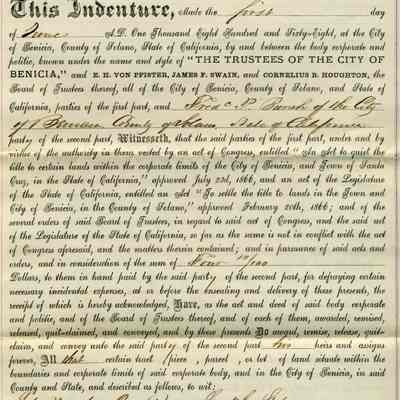 This Indenture, Made the first day
of June A.D. One Thousand Eight Hundred and Sixty-Eight, at the City
of Benicia, County of Solano, State of California, by and between the body corporate and
politic, known under the name and style of "THE TRUSTEES OF THE CITY OF
BENICIA," and E. H. VON PFISTER, JAMES F. SWAIN, and CORNELIUS B. HOUGHTON, the
Board of Trustees thereof, all of the City of Benicia, County of Solano, and State of
California, parties of the first part, and of the City
of County of Solano State of California
party of the second part, Witnesseth, that the said parties of the first part, under and by
virtue of the authority in them vested by an act of Congress, entitled "An Act to quiet the
title to certain lands within the corporate limits of the City of Benicia, and Town of Santa
Cruz, in the State of California," approved July 23d, 1866, and an act of the Legislature
of the State of California, entitled an Act "To settle the title to lands in the Town and
City of Benicia, in the County of Solano," approved February 20th, 1866; and of the
several orders of said Board of Trustees, in regard to said act of Congress, and the said act
of the Legislature of the State of California, so far as the same is not in conflict with the act
of Congress aforesaid, and the matters therein contained; and in pursuance of said acts and
orders, and in consideration of the sum of Four
Dollars, to them in hand paid by the said party of the second part, for defraying certain
necessary incidental expenses, at or before the ensealing and delivery of these presents, the
receipt of which is hereby acknowledged, Have, as the act and deed of said body corporate
and politic, and of the Board of Trustees thereof, and of each of them, awarded, remised,
released, quit-claimed, and conveyed, and by these presents Do award, remise, release, quit-
claim, and convey unto the said party of the second part his heirs and assigns
forever, All that certain tract piece, parcel, or lot of land situate within the
boundaries and corporate limits of said corporate body, and in the City of Benicia, in said
County and State, and described as follows, to wit: